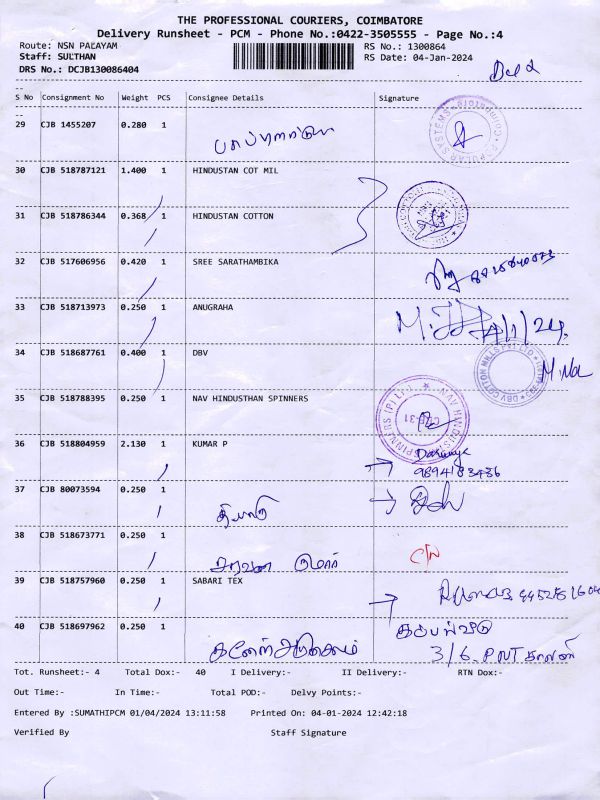 THE PROFESSIONAL COURIERS, COIMBATORE
Delivery Runsheet - PCM - Phone No.:0422-3505555 - Page No.:4
Route: NSN PALAYAM RS No.: 1300864
Staff: SULTHAN RS Date: 04-Jan-2024
DRS No.: DCJB130086404
S No Consignment No Weight PCS Consignee Details Signature
29 CJB 1455207 0.280 1
30 CJB 518787121 1.400 1 HINDUSTAN COT MIL
31 CJB 518786344 0.368 1 HINDUSTAN COTTON
32 CJB 517606956 0.420 1 SREE SARATHAMBIKA
33 CJB 518713973 0.250 1 ANUGRAHA
4/1/24
34 CJB 518687761 0.400 1 DBV
35 CJB 518788395 0.250 1 NAV HINDUSTHAN SPINNERS
36 CJB 518804959 2.130 1 KUMAR P
9894183486
37 CJB 80073594 0.250 1
38 CJB 518673771 0.250 1
குமார்
39 CJB 518757960 0.250 1 SABARI TEX
40 CJB 518697962 0.250 1
3/6. PNT காலனி
Tot. Runsheet:- 4 Total Dox:- 40 I Delivery:- II Delivery:- RTN Dox:-
Out Time:- In Time:- Total POD:- Delvy Points:-
Entered By :SUMATHIPCM 01/04/2024 13:11:58 Printed On: 04-01-2024 12:42:18
Verified By Staff Signature